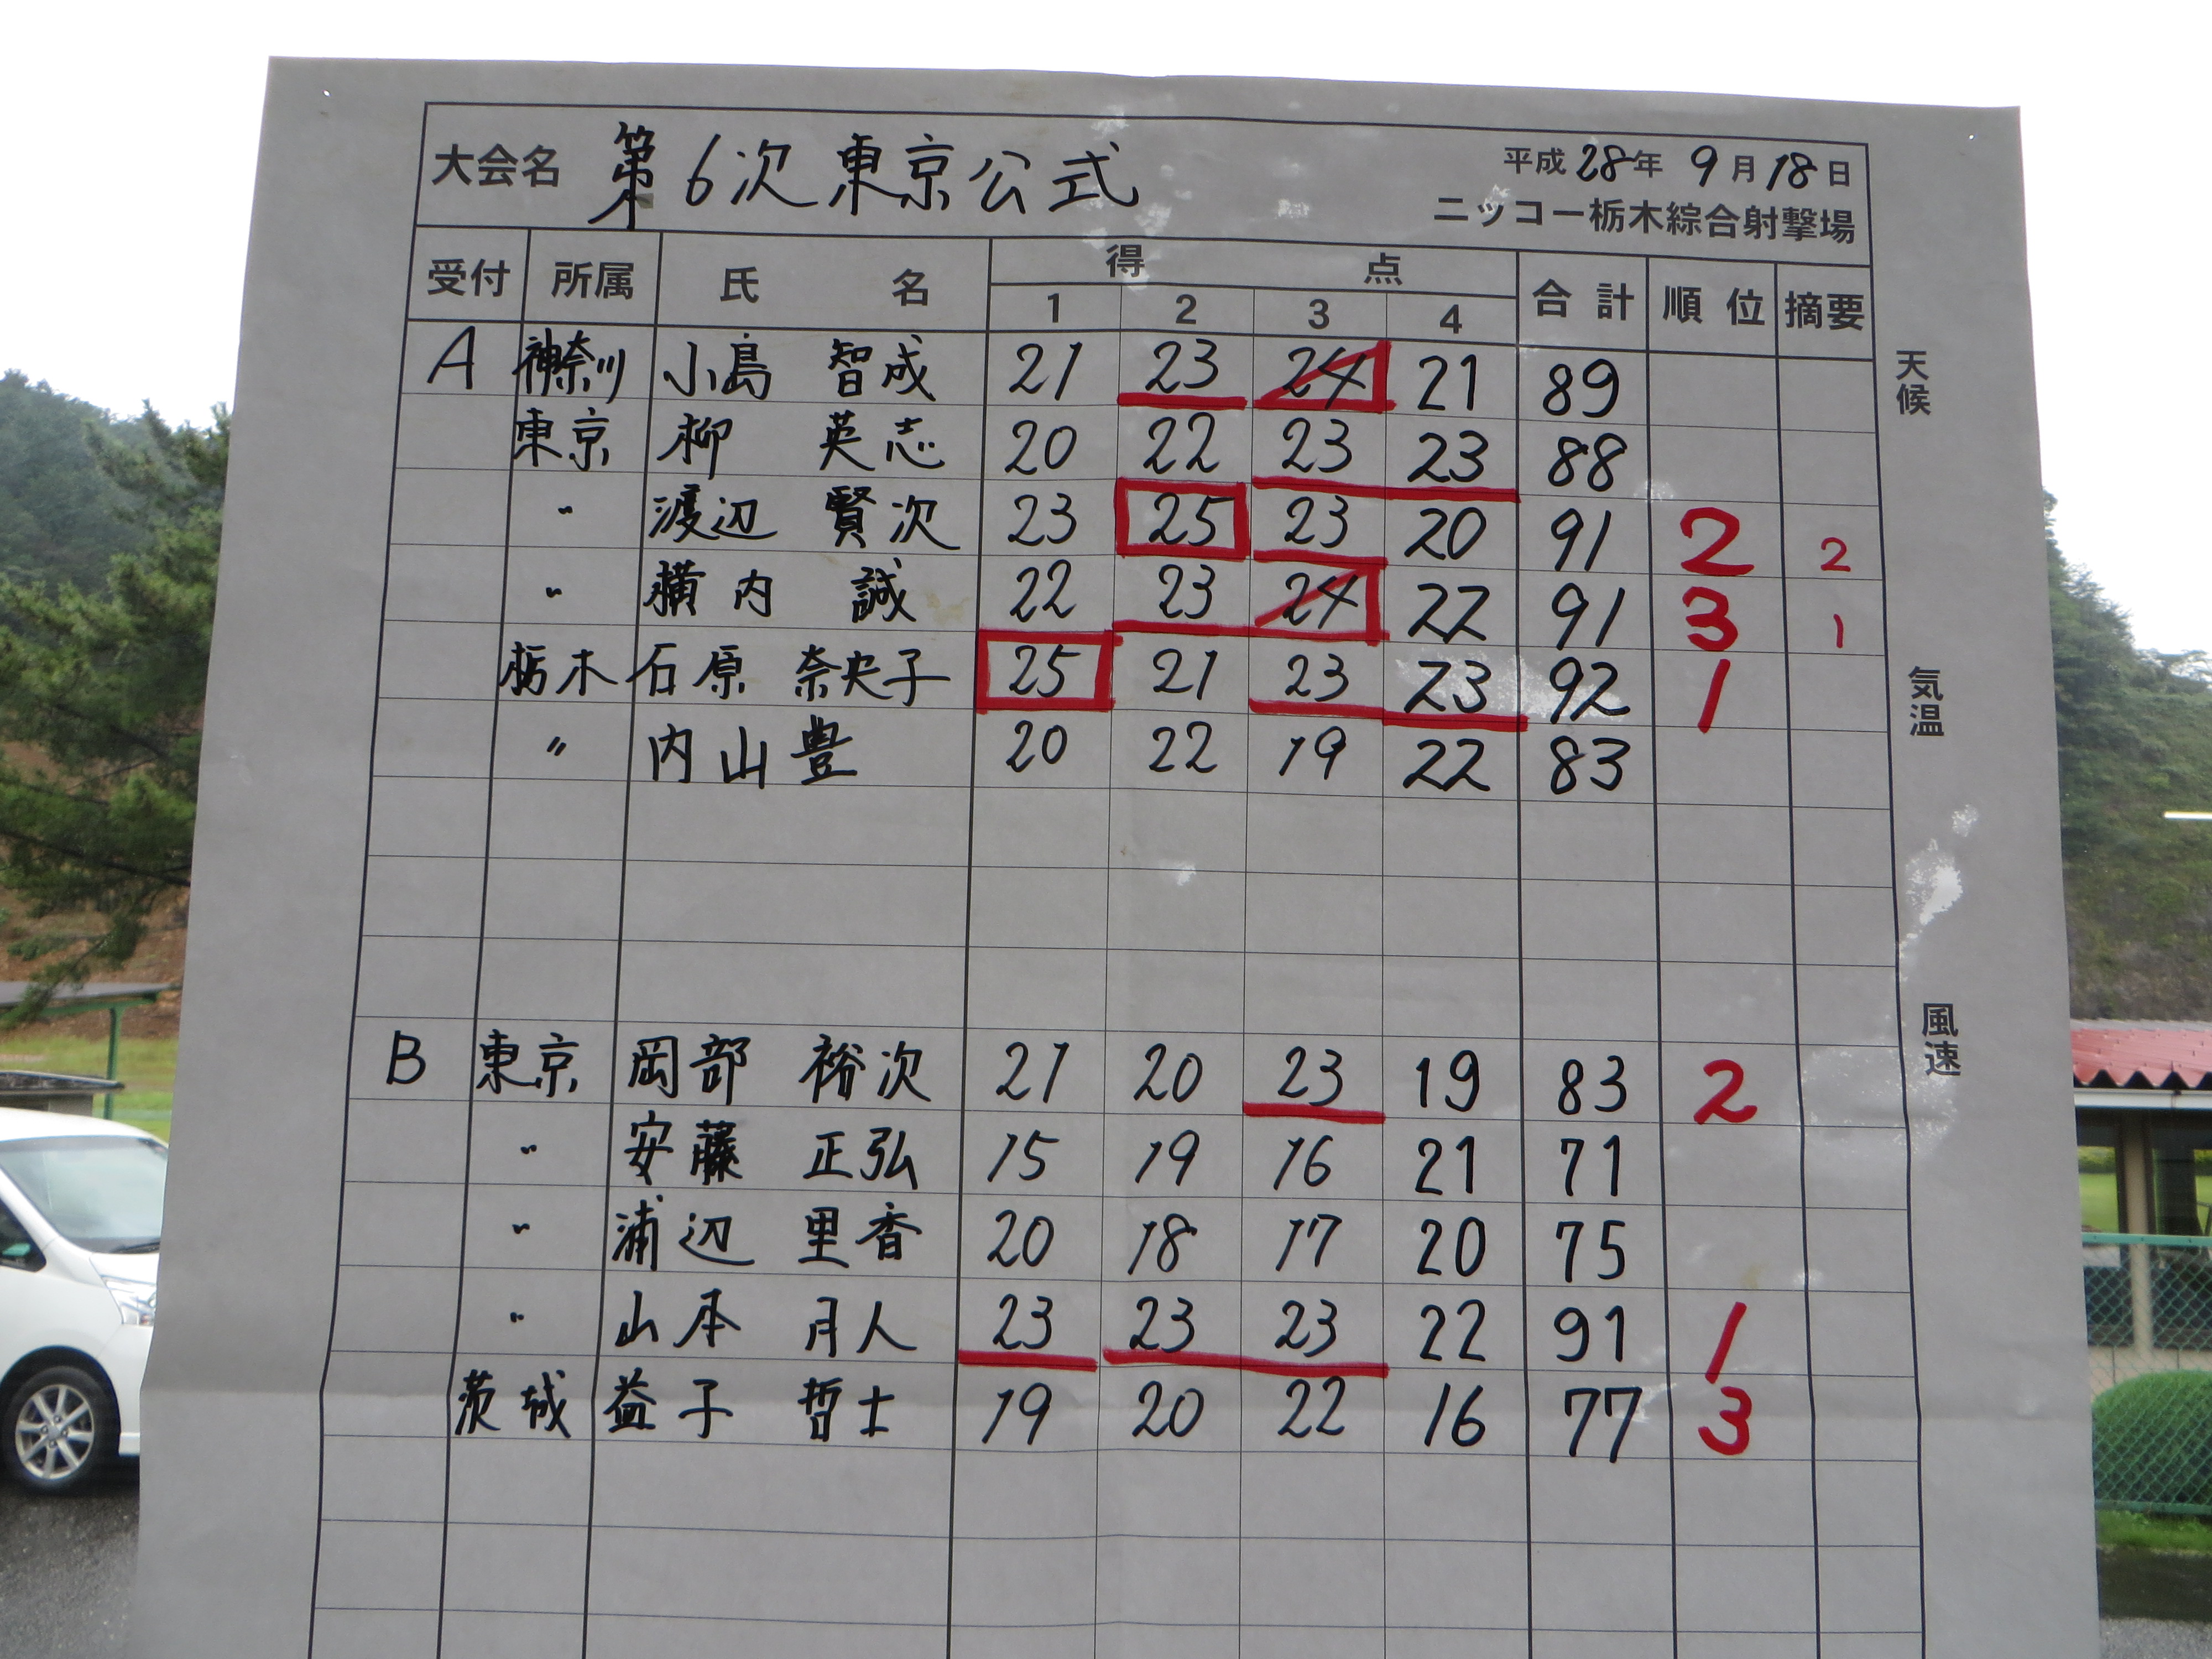 大会名 第6次東京公式 平成28年9月18日
ニッコー栃木綜合射撃場
受付 所属 氏名 得点 合計 順位 摘要
1 2 3 4
A 神奈川 小島 智成 21 23 24 21 89
東京 柳 英志 20 22 23 23 88
〃 渡辺 賢次 23 25 23 20 91 2 2
〃 横内 誠 22 23 24 22 91 3 1
栃木 石原 奈央子 25 21 23 23 92 1
〃 内山 豊 20 22 19 22 83
B 東京 岡部 裕次 21 20 23 19 83 2
〃 安藤 正弘 15 19 16 21 71
〃 浦辺 里香 20 18 17 20 75
〃 山本 月人 23 23 23 22 91 1
茨城 益子 哲士 19 20 22 16 77 3
天候
気温
風速